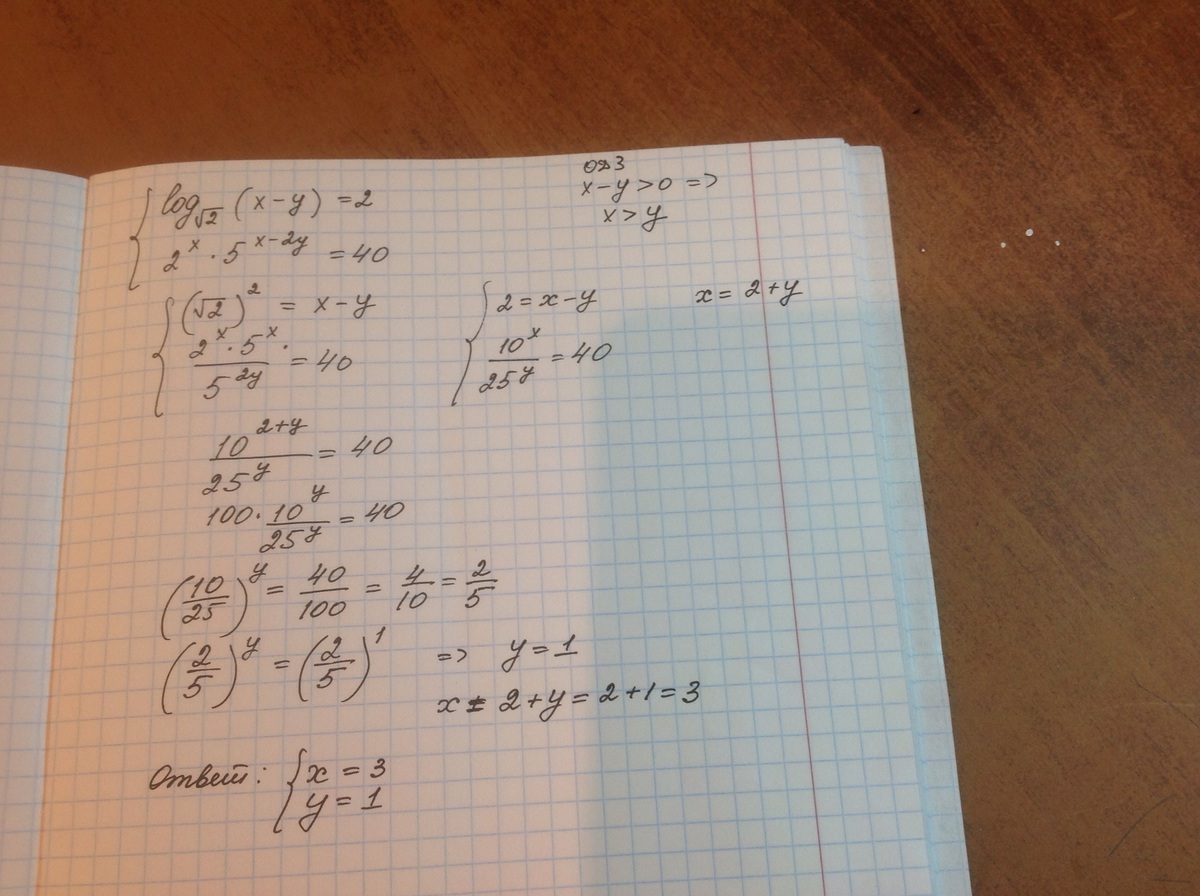 ОДЗ
x-y>0 =>
x>y
log_√2 (x-y) = 2
2^x · 5^(x-2y) = 40
(√2)^2 = x-y
(2^x · 5^x ·)/5^(2y) = 40
2 = x-y
10^x/25^y = 40
x = 2+y
10^(2+y)/25^y = 40
100 · 10^y/25^y = 40
(10/25)^y = 40/100 = 4/10 = 2/5
(2/5)^y = (2/5)^1 => y = 1
x = 2+y = 2+1 = 3
Ответ: { x = 3
y = 1